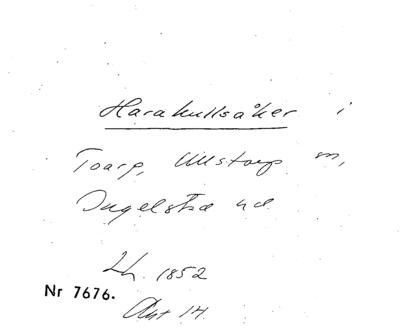 Harakullsåker i
Toarp, Ullstorp sn,
Ingelstad hd
Lh. 1852
Nr 7676.
Akt 14.